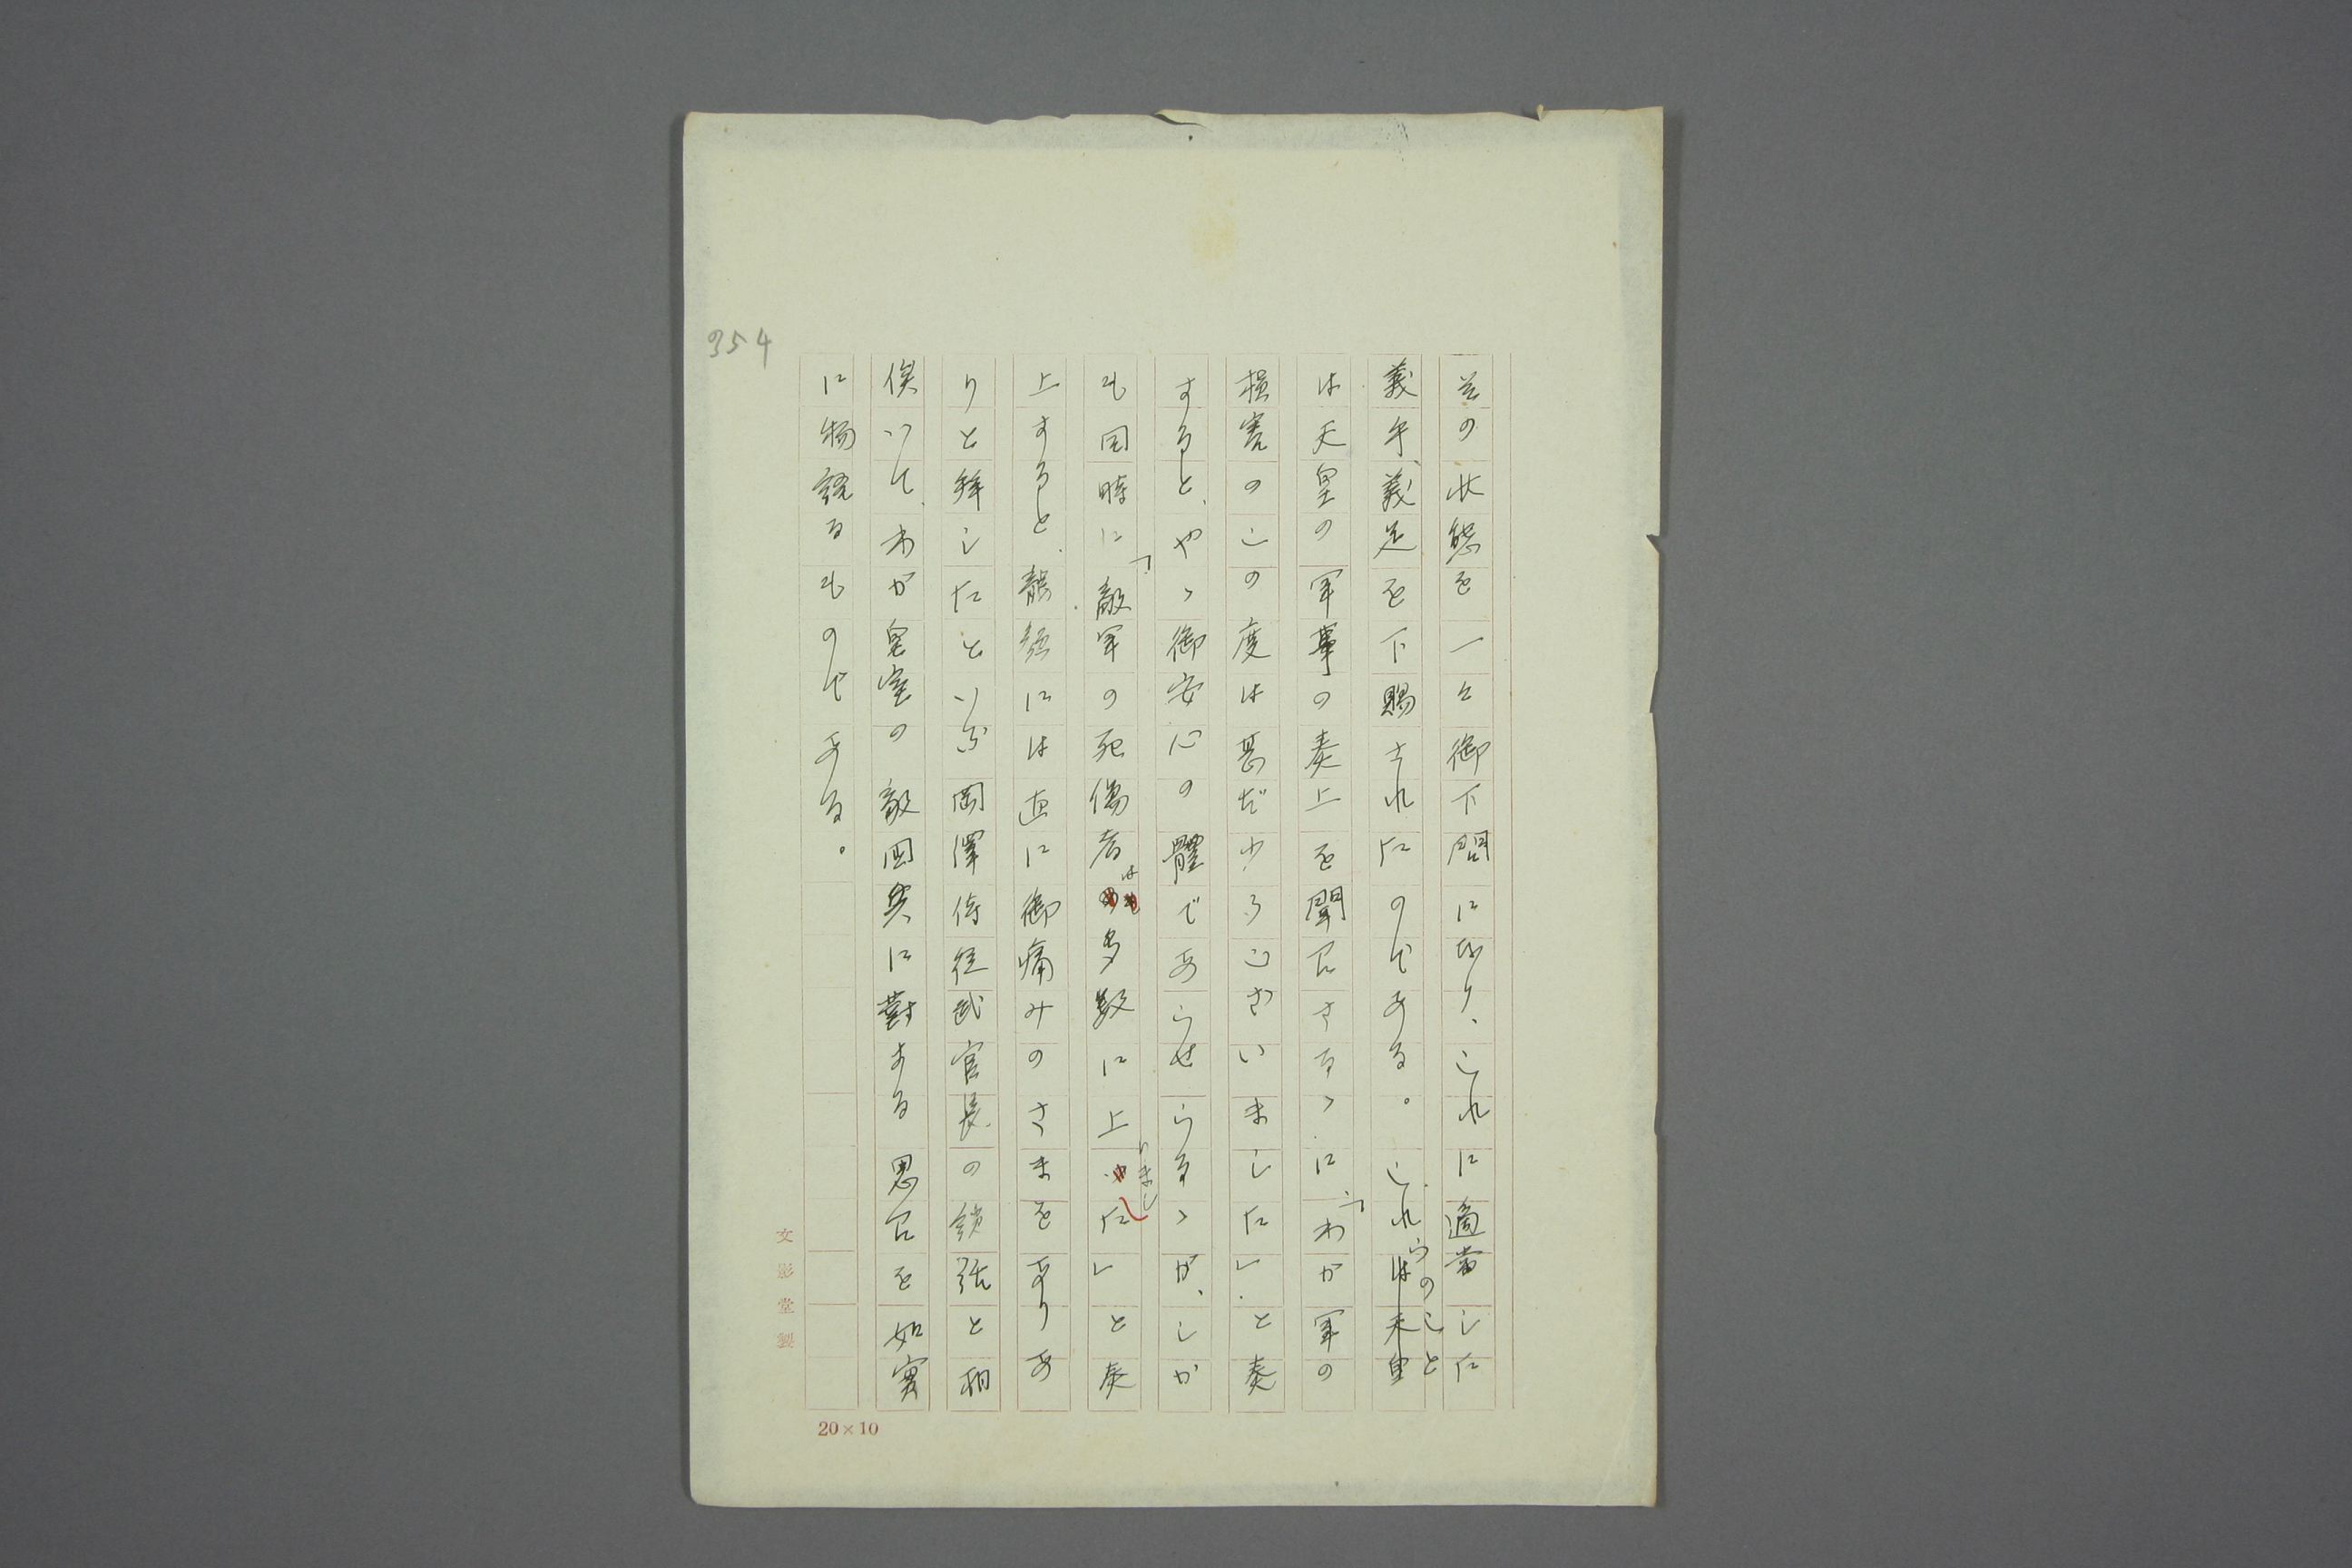 其の状態を一々御下問になり、これに適當した
義手、義足を下賜されたのである。これらのこと
は天皇の軍事の奏上を聞召さるゝに「わが軍の
損害のこの度は甚だ少うございました」と奏
すると、やゝ御安心の體であらせらるゝが、しか
も同時に「敵軍の死傷者は多数に上りました」と奏
上すると、龍顔には直に御痛みのさまをありあ
りと拝したといふ岡澤侍従武官長の謹話と相
俟いて、わが皇室の敵国兵に對する思召を如實
に物語るものである。
354
文影堂製
20×10